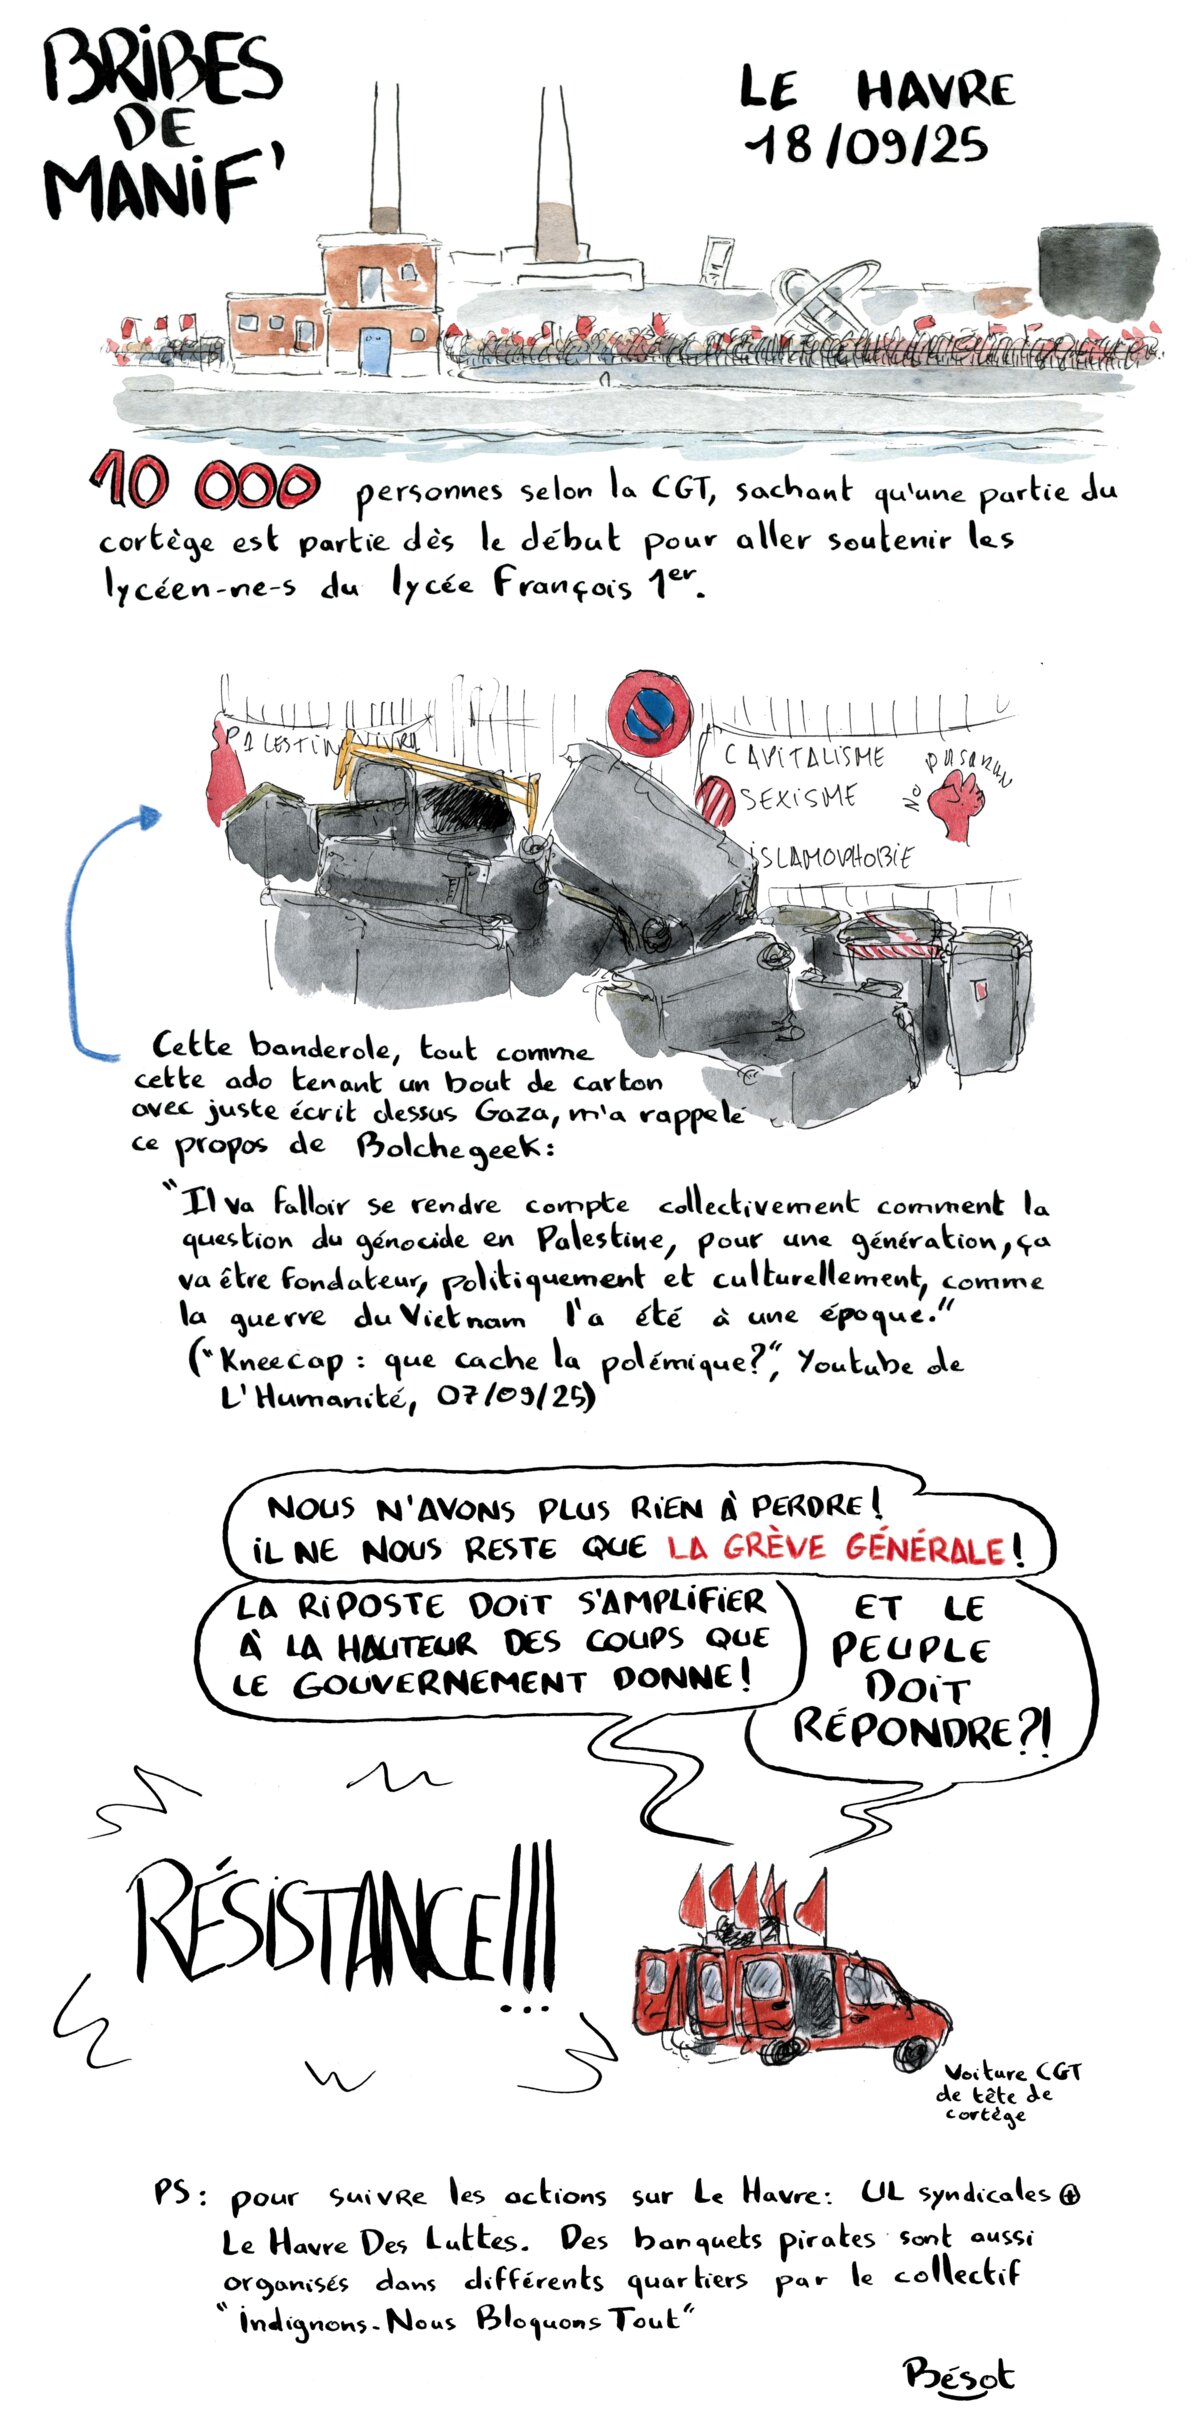 BRIBES
DE
MANIF'
LE HAVRE
18/09/25
10 000 personnes selon la CGT, sachant qu'une partie du
cortège est partie dès le début pour aller soutenir les
lycéen-ne-s du lycée François 1er.
PALESTINE VIVRA
CAPITALISME
SEXISME
ISLAMOPHOBIE
NO PASARAN
Cette banderole, tout comme
cette ado tenant un bout de carton
avec juste écrit dessus Gaza, m'a rappelé
ce propos de Bolchegeek:
"Il va falloir se rendre compte collectivement comment la
question du génocide en Palestine, pour une génération, ça
va être fondateur, politiquement et culturellement, comme
la guerre du Vietnam l'a été à une époque."
("Kneecap : que cache la polémique?", Youtube de
L'Humanité, 07/09/25)
NOUS N'AVONS PLUS RIEN À PERDRE!
IL NE NOUS RESTE QUE LA GRÈVE GÉNÉRALE!
LA RIPOSTE DOIT S'AMPLIFIER
À LA HAUTEUR DES COUPS QUE
LE GOUVERNEMENT DONNE!
ET LE
PEUPLE
DOIT
RÉPONDRE?!
RÉSISTANCE!!!
Voiture CGT
de tête de
cortège
PS: pour suivre les actions sur Le Havre: UL syndicales ⊕
Le Havre Des Luttes. Des banquets pirates sont aussi
organisés dans différents quartiers par le collectif
"Indignons-Nous Bloquons Tout"
Bésot